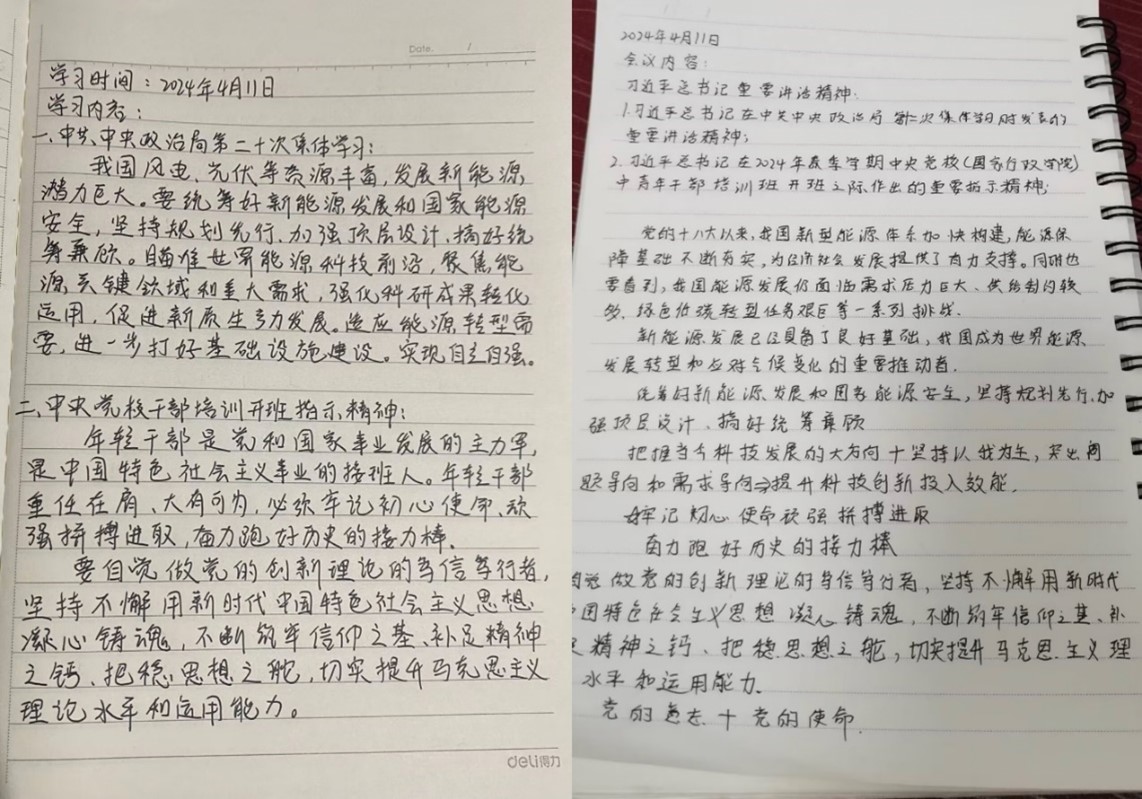 Date. /
学习时间：2024年4月11日
学习内容：
一、中共中央政治局第二十次集体学习：
我国风电、光伏等资源丰富，发展新能源
潜力巨大。要统筹好新能源发展和国家能源
安全，坚持规划先行、加强顶层设计、搞好统
筹兼顾。瞄准世界能源科技前沿，聚焦能
源关键领域和重大需求，强化科研成果转化
运用，促进新质生产力发展。适应能源转型需
要，进一步打好基础设施建设。实现自立自强。
二、中央党校干部培训开班指示精神：
年轻干部是党和国家事业发展的主力军，
是中国特色社会主义事业的接班人。年轻干部
重任在肩、大有可为，必须牢记初心使命、顽
强拼搏进取，奋力跑好历史的接力棒。
要自觉做党的创新理论的笃信笃行者，
坚持不懈用新时代中国特色社会主义思想
凝心铸魂，不断筑牢信仰之基、补足精神
之钙、把稳思想之舵，切实提升马克思主义
理论水平和运用能力。
deli得力
2024年4月11日
会议内容：
习近平总书记重要讲话精神：
1.习近平总书记在中共中央政治局 集体学习时发表的
重要讲话精神；
2.习近平总书记在2024年春季学期中央党校(国家行政学院)
中青年干部培训班开班之际作出的重要指示精神；
党的十八大以来，我国新型能源体系加快构建，能源保
障基础不断夯实，为经济社会发展提供了有力支撑。同时也
要看到，我国能源发展仍面临需求压力巨大、供给制约较
多、绿色低碳转型任务艰巨等一系列挑战。
新能源发展已经具备了良好基础，我国成为世界能源
发展转型和应对气候变化的重要推动者.
统筹好新能源发展和国家能源安全，坚持规划先行、加
强顶层设计、搞好统筹兼顾
把握当今科技发展的大方向十坚持以我为主，突出问
题导向和需求导向⇒提升科技创新投入效能.
牢记初心使命顽强拼搏进取
奋力跑好历史的接力棒
自觉做党的创新理论的笃信笃行者，坚持不懈用新时代
中国特色社会主义思想凝心铸魂，不断筑牢信仰之基、补
足精神之钙、把稳思想之舵，切实提升马克思主义理
水平和运用能力.
党的意志十党的使命.